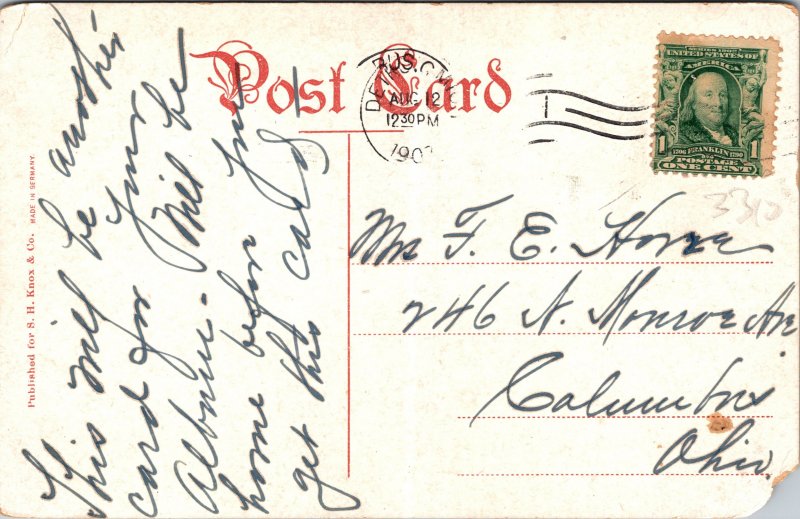 Post Card
AUG 12
12 30 PM
SERIES 1902
UNITED STATES OF
AMERICA
1706 FRANKLIN 1790
1 POSTAGE 1
ONE CENT
Published for S. H. Knox & Co. MADE IN GERMANY
This will be another
card for your
Album. Will be
home before you
get this card
Mrs F. E.
246 N. Monroe Ave
Columbus
Ohio.